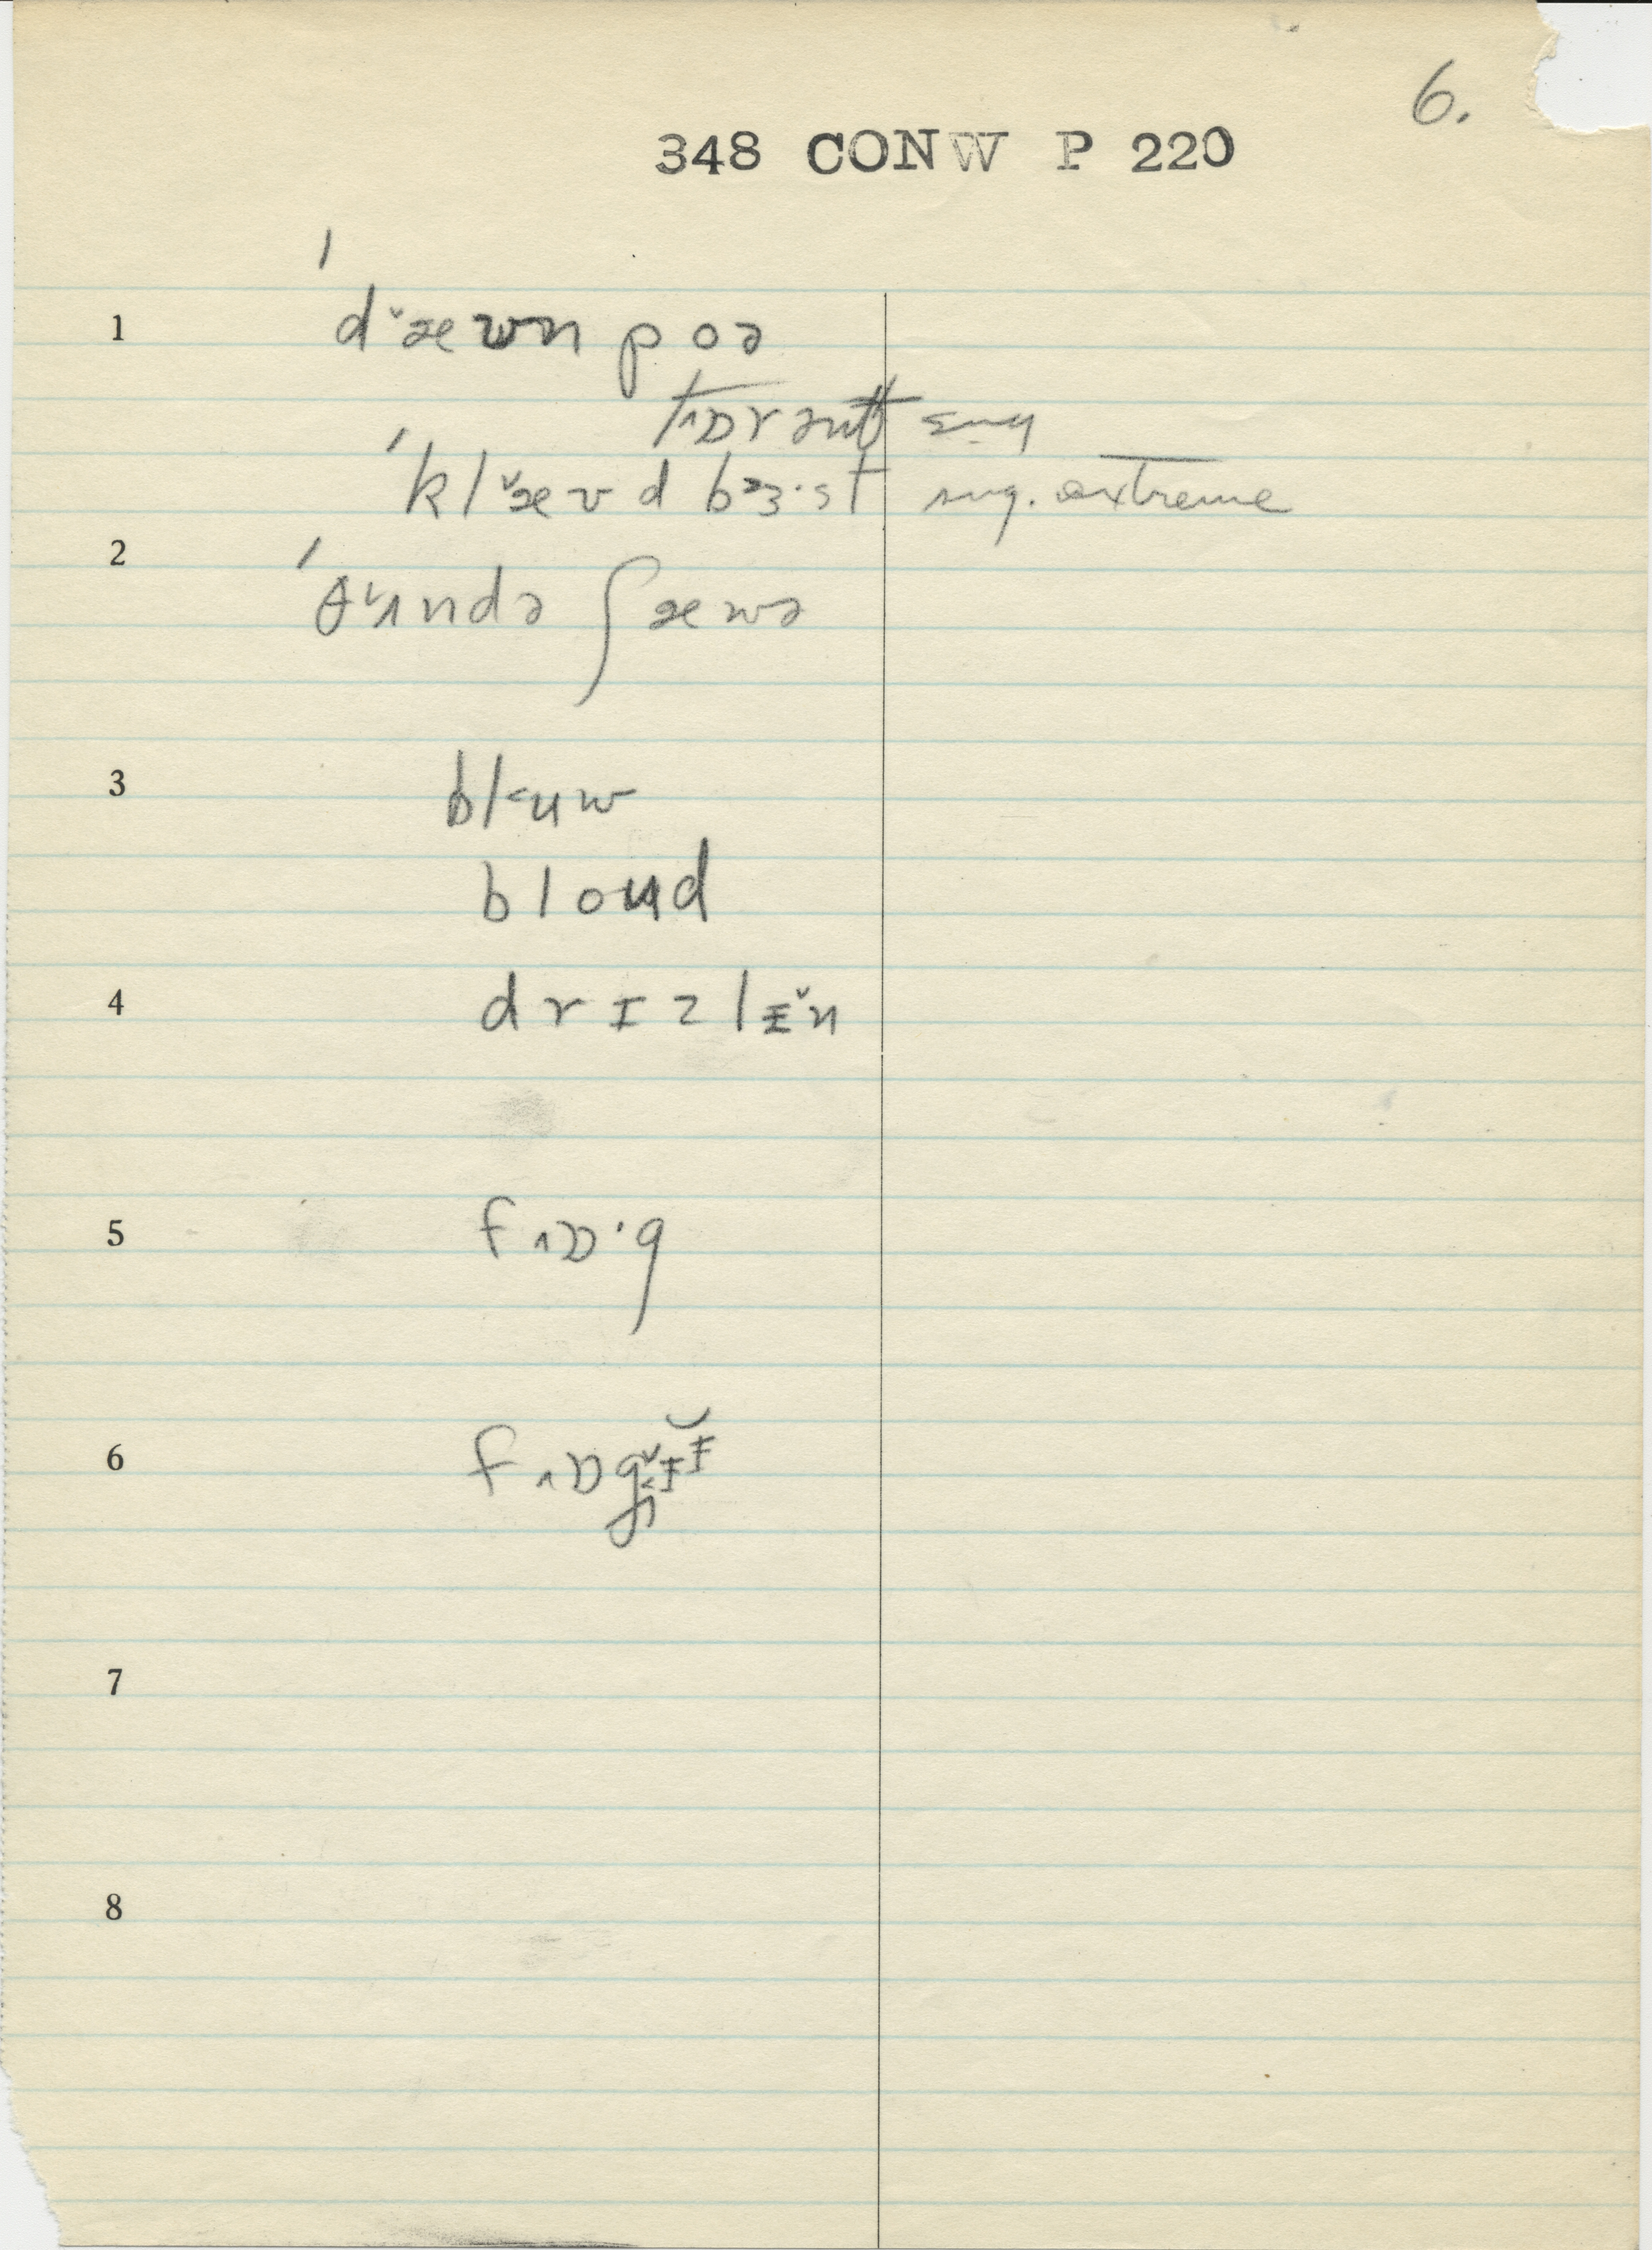 6.
348 CONW P 220
1 ˈd˅æwn poə
tɒrənt sug
ˈkl˅æʊd bɜ·st sug. extreme
2 ˈθʌndə ʃæwə
3 bl˂ʉw
bloʉd
4 drɪzlɪ˅n
5 f˄ɒ·g
6
7
8